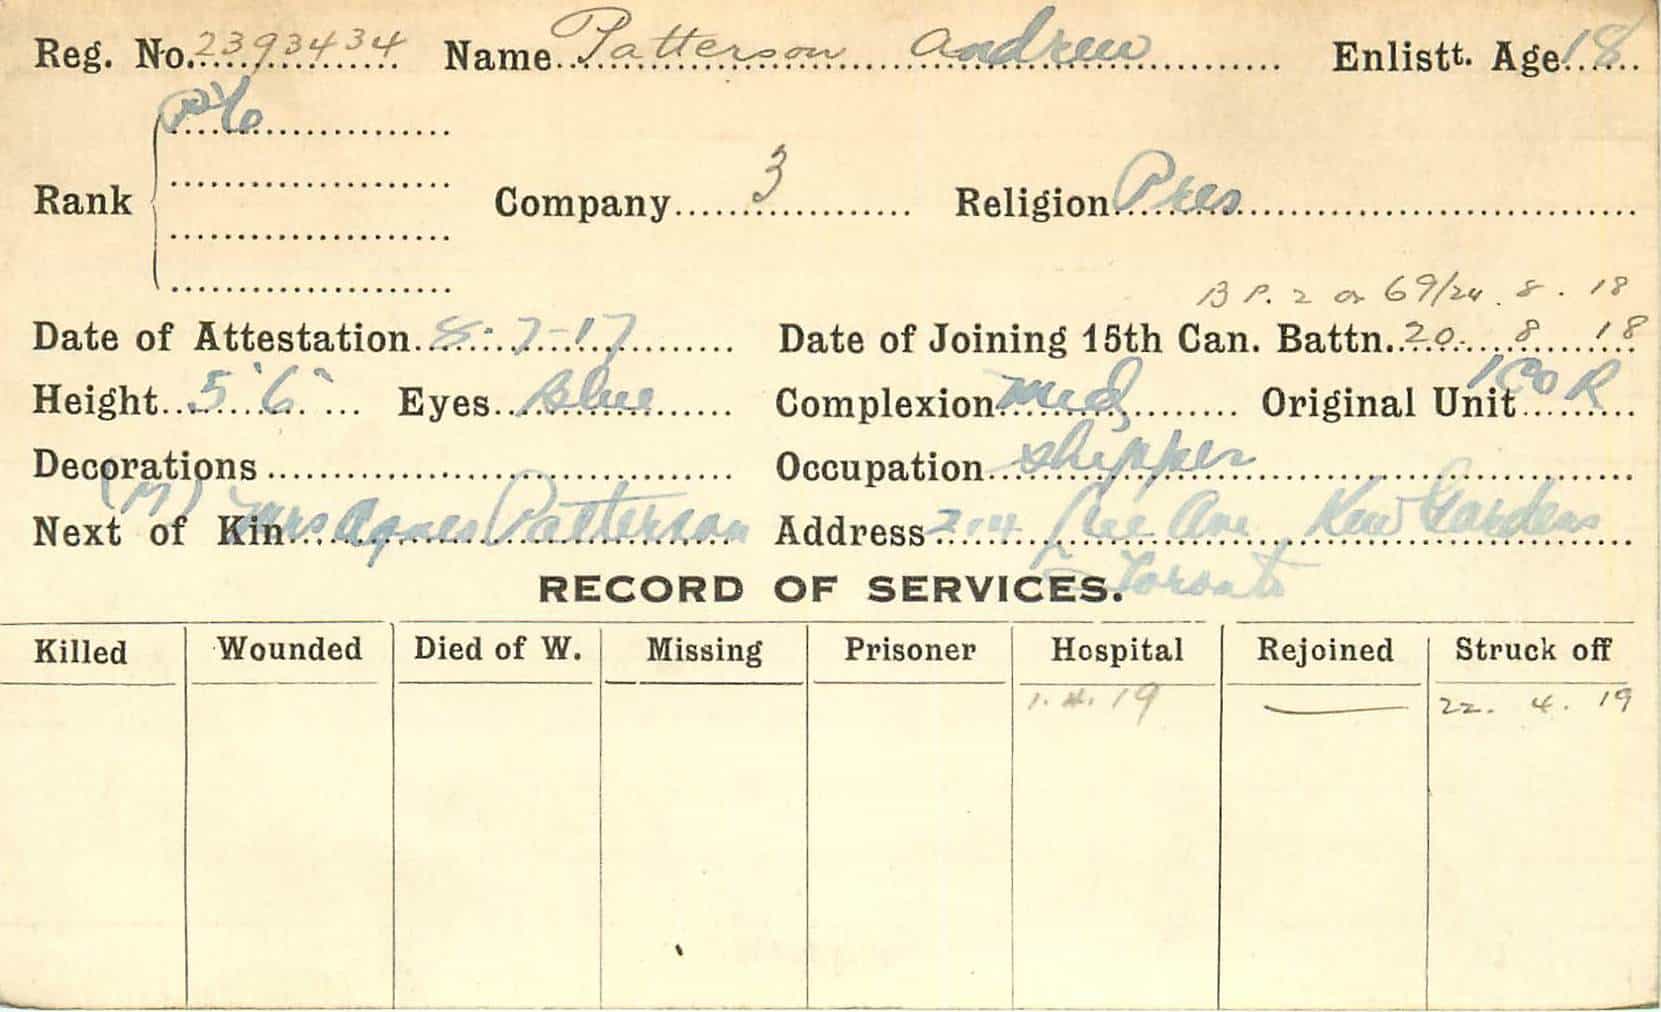 Reg. No. 2393434 Name Patterson Andrew Enlistt. Age 18
Pte
Rank Company 3 Religion Pres
B P. 2 69/24. 8. 18
Date of Attestation 8-7-17 Date of Joining 15th Can. Battn. 20. 8 18
Height 5' 6" Eyes Blue Complexion Med Original Unit 1 C O R
Decorations Occupation Shipper
(M)
Next of Kin Mrs Agnes Patterson Address Lee Ave Kew Gardens
Toronto
RECORD OF SERVICES.
Killed Wounded Died of W. Missing Prisoner Hospital Rejoined Struck off
1. 4. 19 — 22. 4. 19